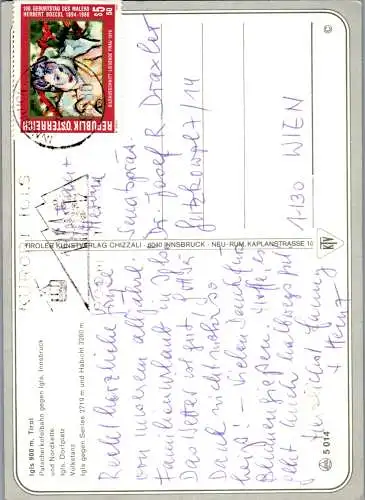 Igls 900 m, Tirol
Patscherkofelbahn gegen Igls, Innsbruck
und Nordkette
Igls, Dorfplatz
Volkstanz
Igls gegen Serles 2719 m und Habicht 3280 m
Recht herzliche Grüße
von unserem alljährl.
Familienurlaub in Igls
Das Wetter ist gut, Gott sei
Dank nicht mehr so
heiß! Vielen Dank für
hoffe, es
geht Euch halbwegs gut
Herzlichst
+ Heinz
5 014
TIROLER KUNSTVERLAG CHIZZALI · 6040 INNSBRUCK · NEU-RUM, KAPLANSTRASSE 10
KURORT IGLS
100. GEBURTSTAG DES MALERS
HERBERT BOECKL 1894-1966
S5 50
REPUBLIK ÖSTERREICH
Senatspräs.
Dr. Josef R. Draxler
Gutzkowpl. 7/14
1130 WIEN
KTV
©